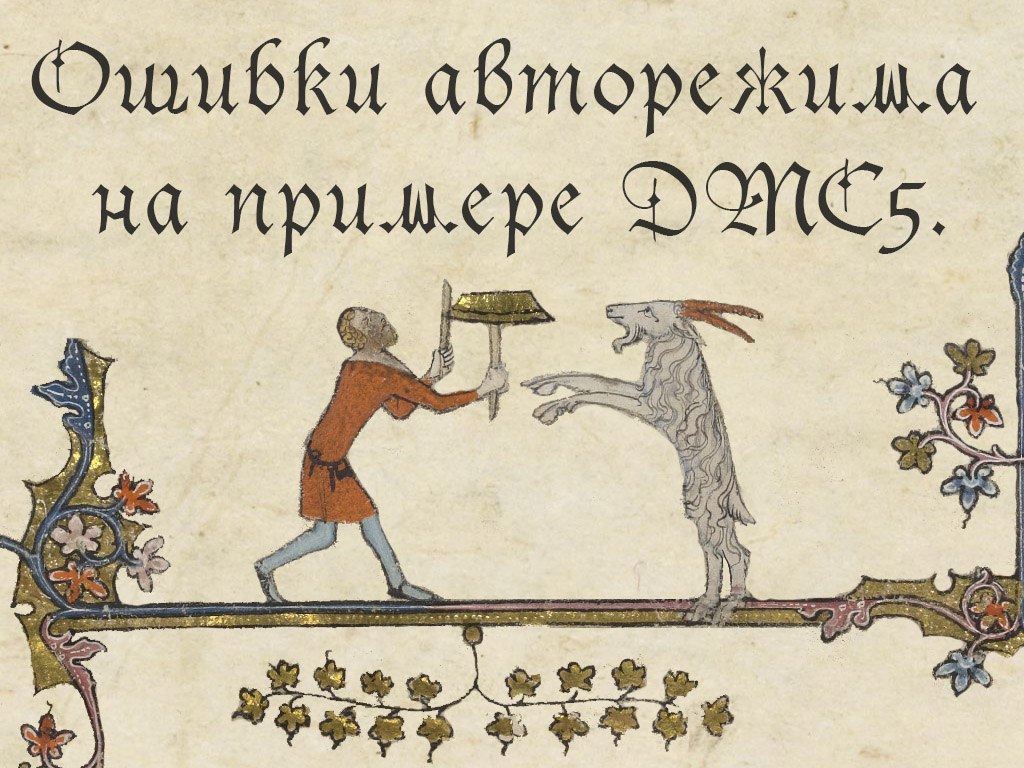 Ошибки авторежима
на примере DMC5.